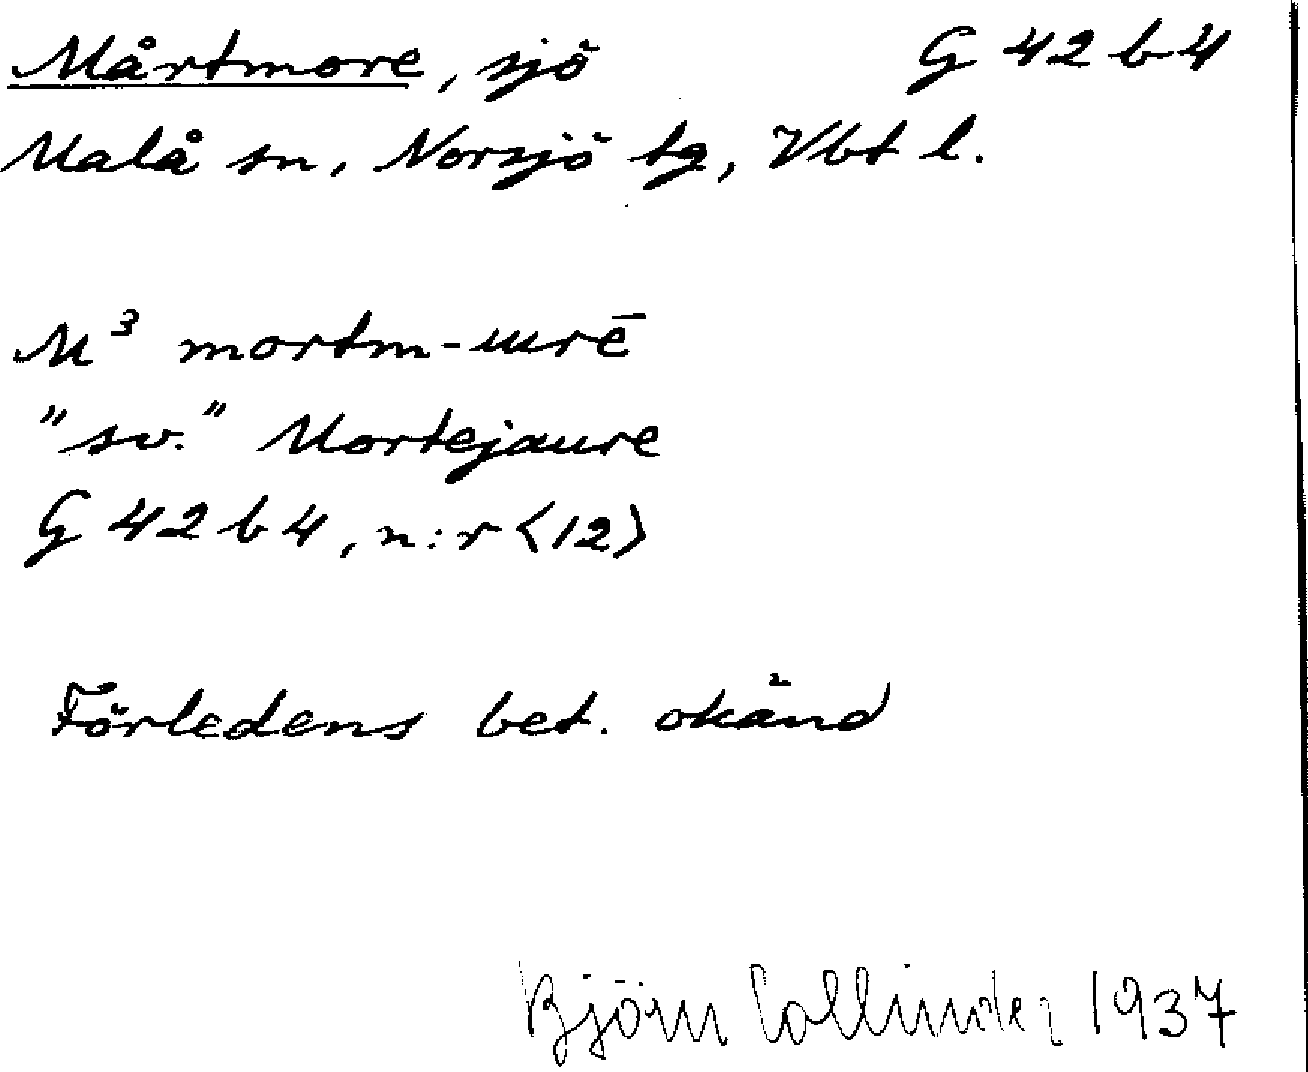 Mårtmore, sjö G 42 b 4
Malå sn, Norsjö tg, Vbt l.
M³ mortm-urē
"sv." Mortejaure
G 42 b 4, n:r <12>
Förledens bet. okänd
Björn Collinder 1937